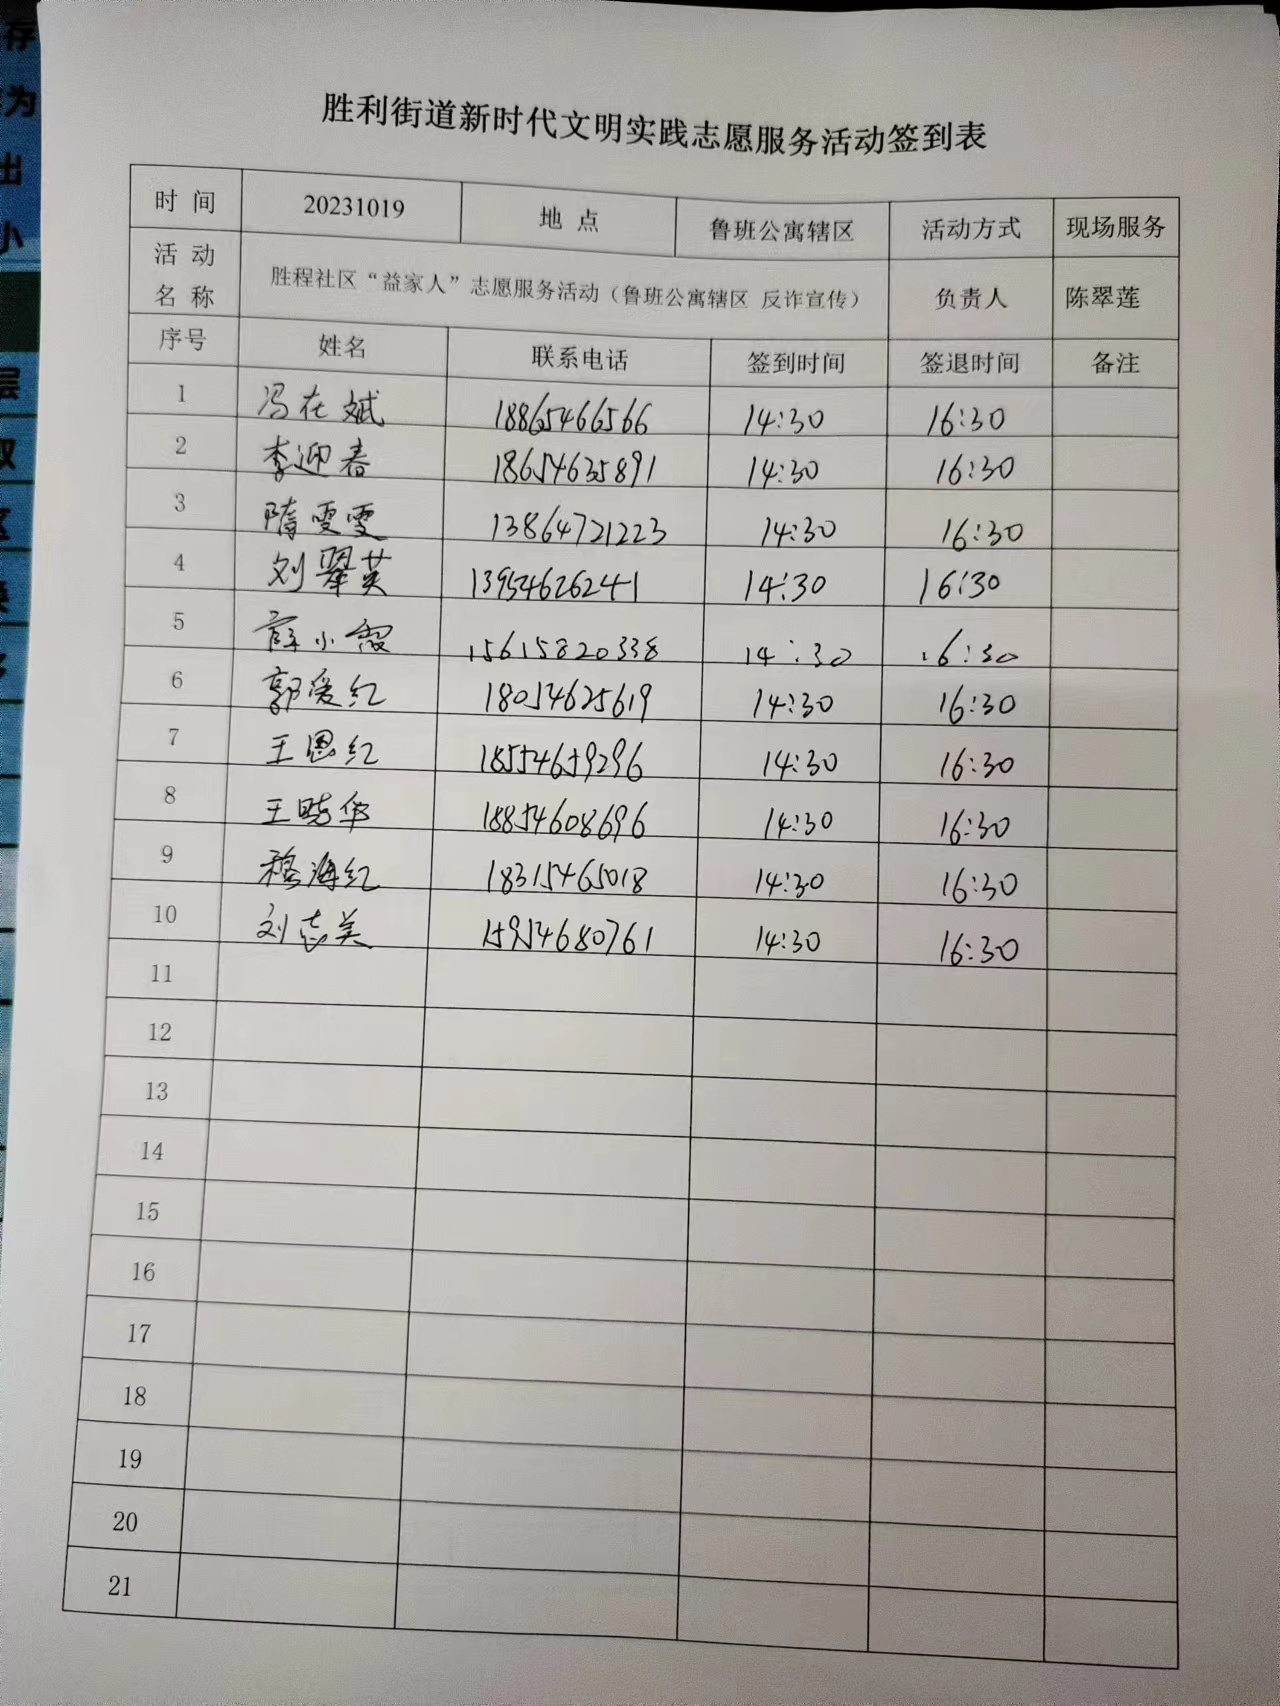 胜利街道新时代文明实践志愿服务活动签到表
时 间 20231019 地 点 鲁班公寓辖区 活动方式 现场服务
活 动 名 称 胜程社区“益家人”志愿服务活动（鲁班公寓辖区 反诈宣传） 负责人 陈翠莲
序号 姓名 联系电话 签到时间 签退时间 备注
1 冯在斌 18865466566 14:30 16:30
2 李迎春 18654635891 14:30 16:30
3 隋雯雯 13864721223 14:30 16:30
4 刘翠英 13954626241 14:30 16:30
5 薛小霞 15615820338 14:30 16:30
6 郭爱红 18054625619 14:30 16:30
7 王恩红 18554659296 14:30 16:30
8 王晓华 18854608696 14:30 16:30
9 穆海红 18315465018 14:30 16:30
10 刘志美 15954680761 14:30 16:30
11
12
13
14
15
16
17
18
19
20
21
存
为
出
小
层